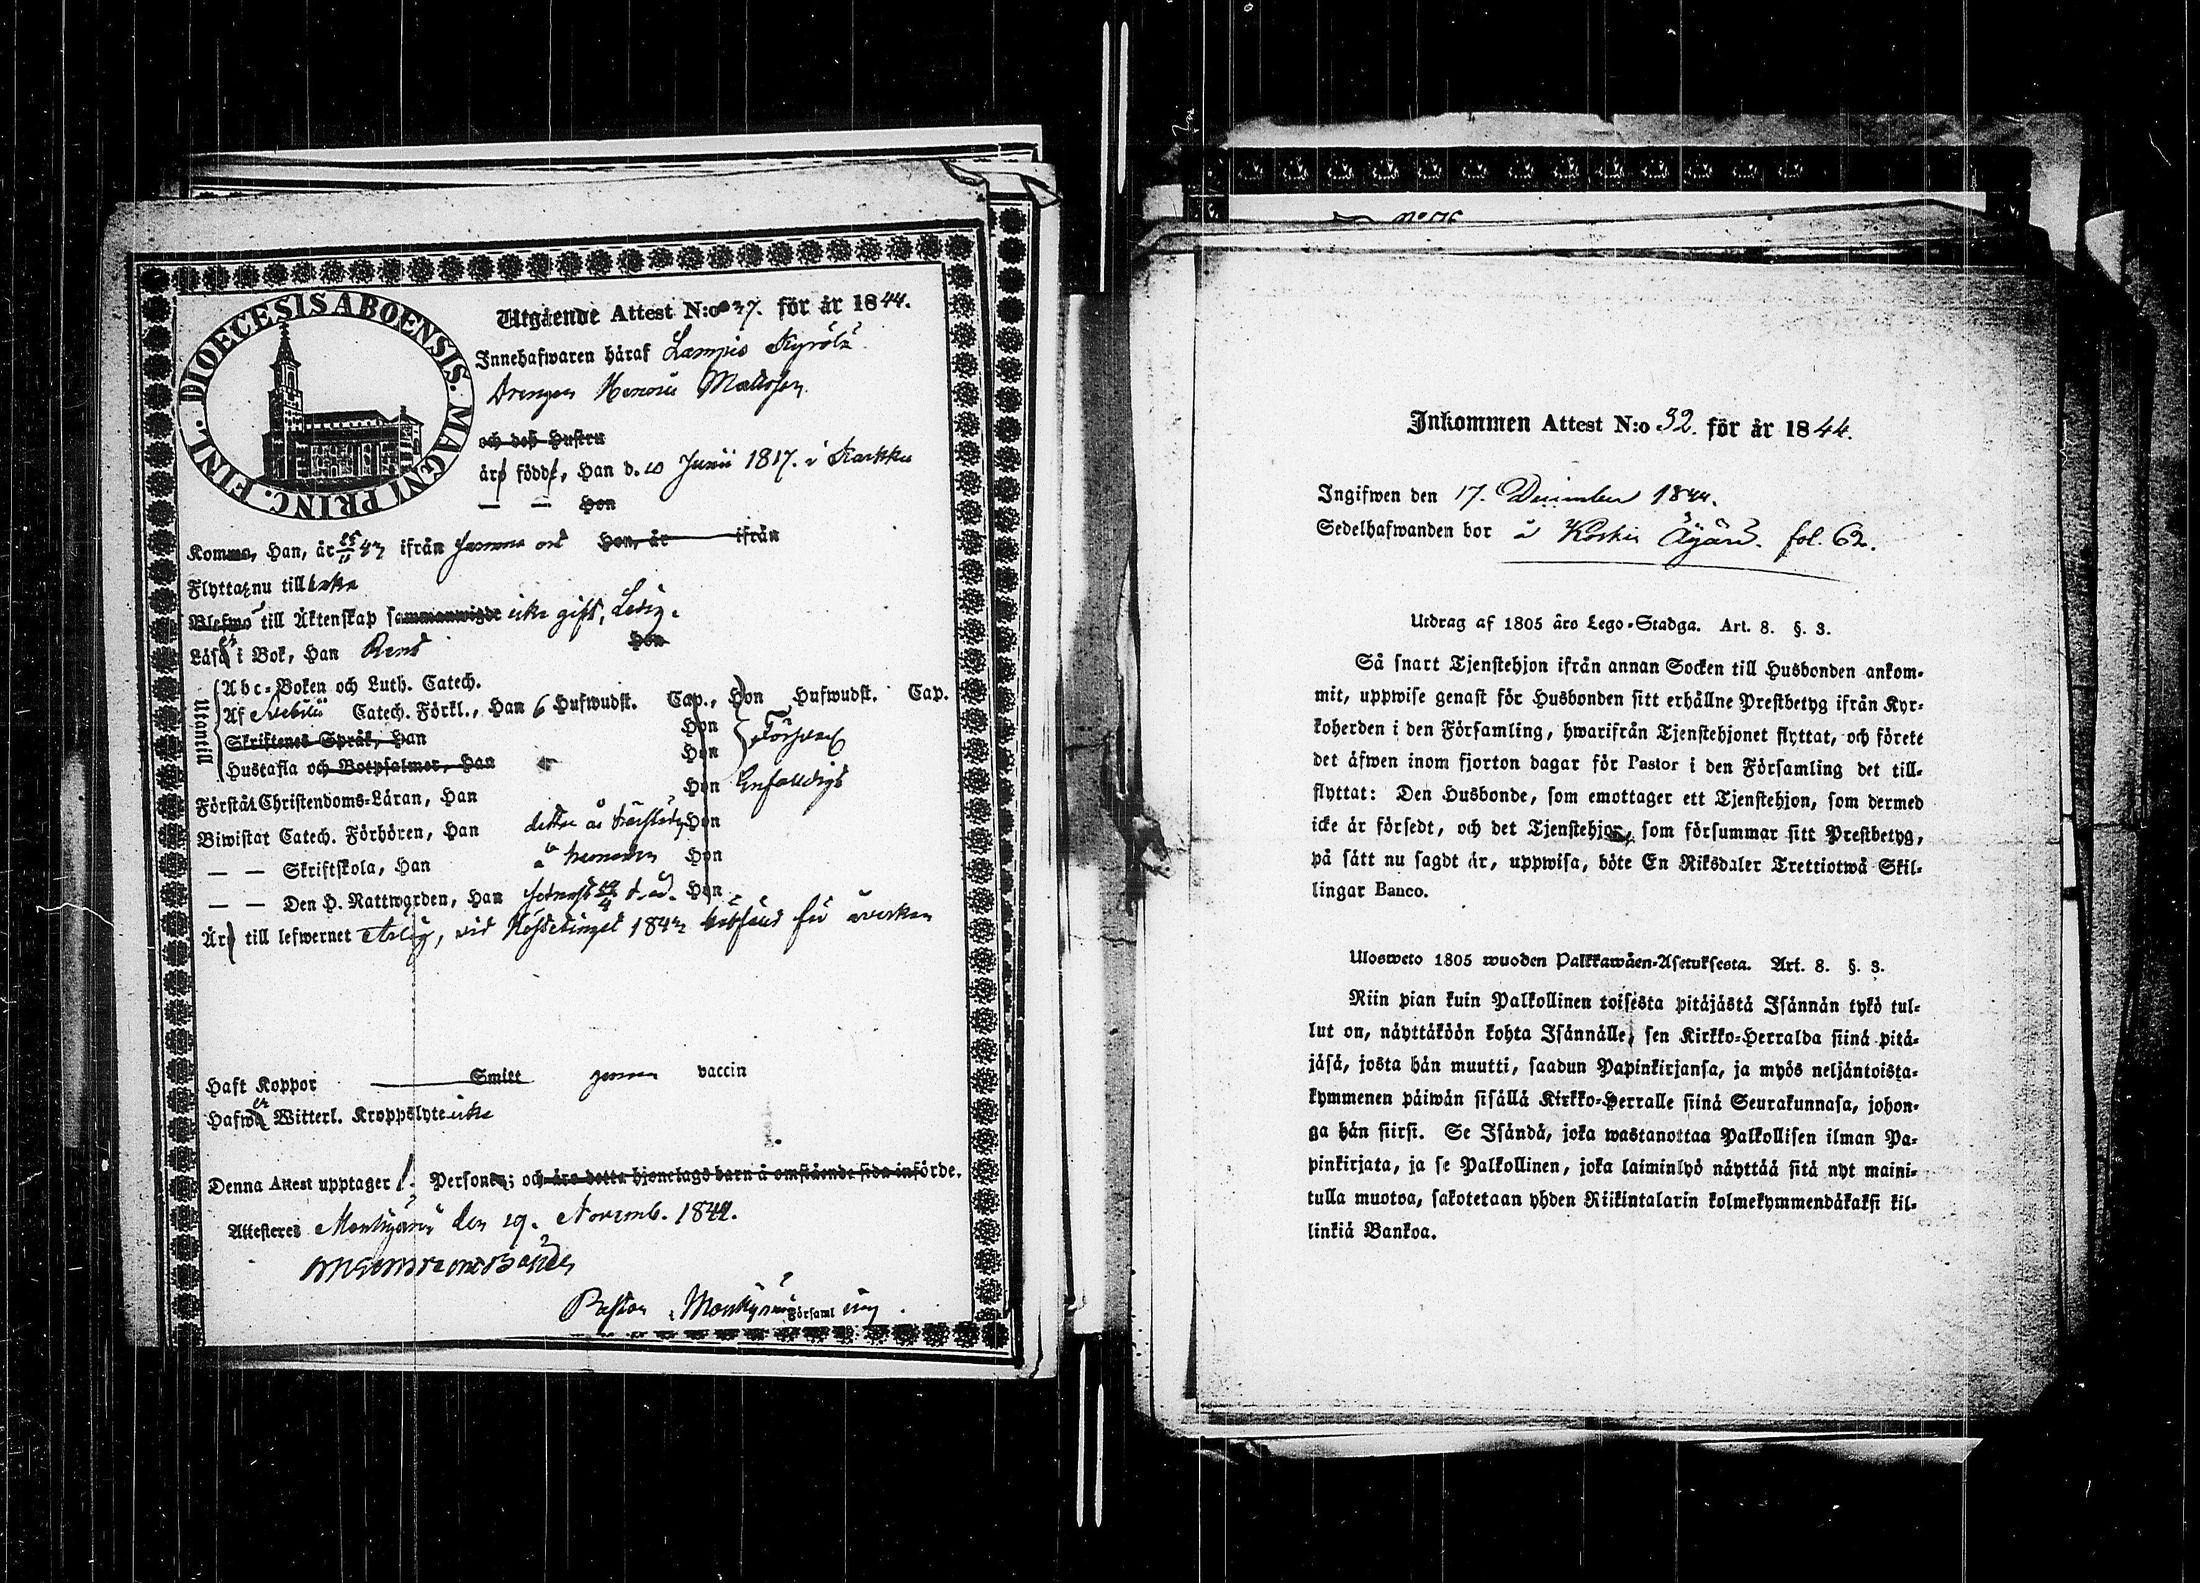 DIOECESIS ABOENSIS. MAGNI PRINC. FINL.
Utgående Attest N:o 37. för år 1844.
Innehafwaren häraf Lampis Kyrölä
Drengen Matts
och deß Hustru
äro födde, Han d. 10 Junii 1817. i Karkku
— — Hon
Komma, Han, år 43 ifrån Hon, år ifrån
Flytta nu till
Blefwo till Äktenskap sammanwigde icke gift, Ledig.
Läsa i Bok, Han Rent Hon
Utantill
Abc-Boken och Luth. Catech.
Af Svebilii Catech. Förkl., Han 6 Hufwudst. Cap., Hon Hufwudst. Cap.
Skriftenes Språk, Han Hon
Hustafla och Botpsalmer, Han Hon
Förstå Christendoms-Läran, Han Hon Enfaldigt
Biwistat Catech. Förhören, Han Hon
— — Skriftskola, Han Hon
— — Den H. Nattwarden, Han Hon
Äro till lefwernet vid Hösttinget 1843 för åverkan
Haft Koppor Smitt genom vaccin
Hafwa Witterl. Kroppslyte icke
Denna Attest upptager 1. Persone; och äro detta hjonelags barn å omstående sida införde.
Attesteres Mouhijärvi den 19. Novemb. 1844.
Pastor i Mouhijärvi Församling.
No 176
Inkommen Attest N:o 32. för år 1844.
Ingifwen den 17. December 1844.
Sedelhafwanden bor å Koskis Äijärä. fol. 62.
Utdrag af 1805 års Lego-Stadga. Art. 8. §. 3.
Så snart Tjenstehjon ifrån annan Socken till Husbonden ankom-
mit, uppwise genast för Husbonden sitt erhållne Prestbetyg ifrån Kyr-
koherden i den Församling, hwarifrån Tjenstehjonet flyttat, och förete
det äfwen inom fjorton dagar för Pastor i den Församling det till-
flyttat: Den Husbonde, som emottager ett Tjenstehjon, som dermed
icke är försedt, och det Tjenstehjon, som försummar sitt Prestbetyg,
på sätt nu sagdt är, uppwisa, böte En Riksdaler Trettiotwå Skil-
lingar Banco.
Ulosweto 1805 wuoden Palkkawäen-Asetuksesta. Art. 8. §. 3.
Niin pian kuin Palkollinen toisesta pitäjästä Isännän tykö tul-
lut on, näyttäköön kohta Isännälle, sen Kirkko-Herralda siinä pitä-
jäsä, josta hän muutti, saadun Papinkirjansa, ja myös neljäntoista-
kymmenen päiwän sisällä Kirkko-Herralle siinä Seurakunnasa, johon-
ga hän siirsi. Se Isändä, joka wastanottaa Palkollisen ilman Pa-
pinkirjata, ja se Palkollinen, joka laiminlyö näyttää sitä nyt maini-
tulla muotoa, sakotetaan yhden Riikintalarin kolmekymmendäkaksi kil-
linkiä Bankoa.